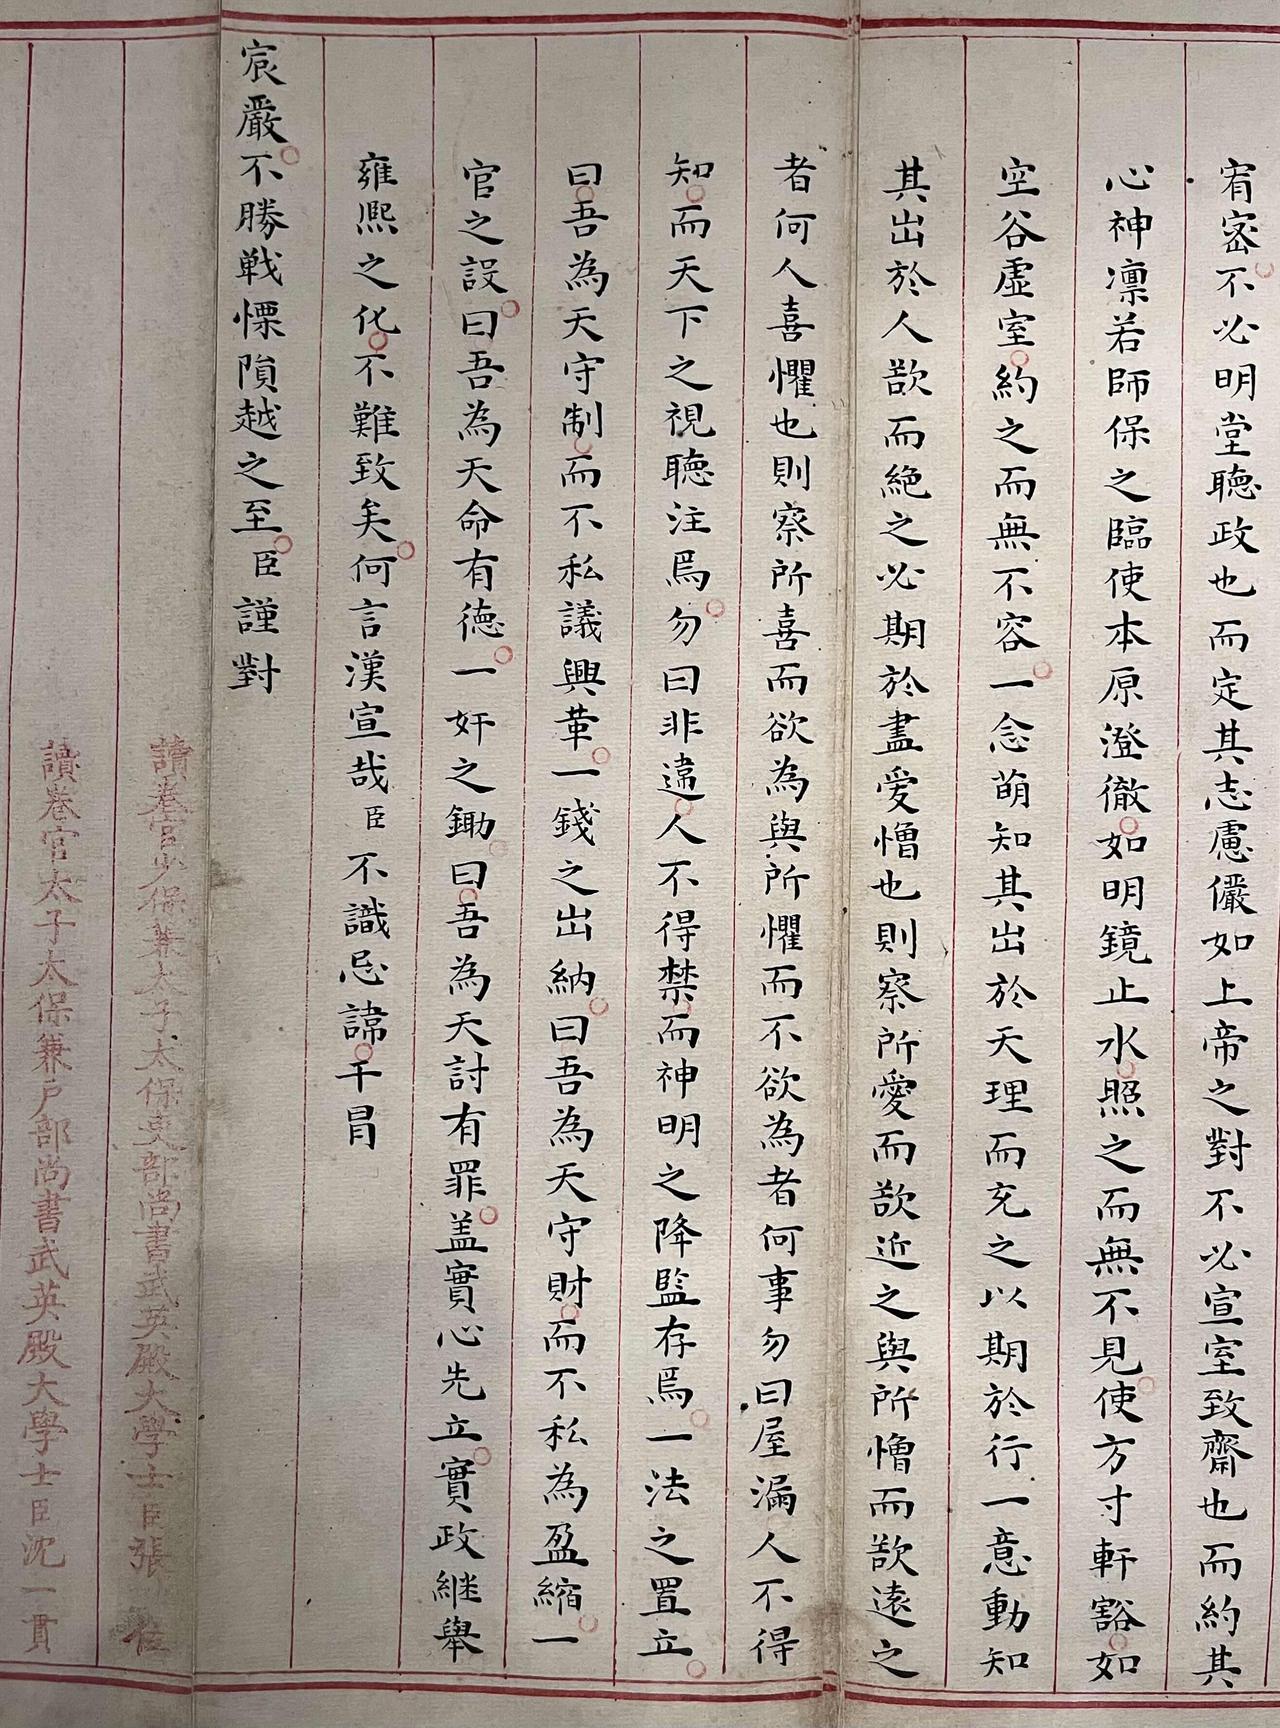 宥密不必明堂聴政也而定其志慮儼如上帝之對不必宣室致齋也而約其
心神凛若師保之臨使本原澄徹如明鏡止水照之而無不見使方寸軒豁如
空谷虚室約之而無不容一念萌知其出於天理而充之以期於行一意動知
其出於人欲而絶之必期於盡愛憎也則察所愛而欲近之與所憎而欲遠之
者何人喜懼也則察所喜而欲為與所懼而不欲為者何事勿曰屋漏人不得
知而天下之視聴注焉勿曰非違人不得禁而神明之降監存焉一法之置立
曰吾為天守制而不私議興革一錢之出納曰吾為天守財而不私為盈縮一
官之設曰吾為天命有德一奸之鋤曰吾為天討有罪盖實心先立實政継舉
雍熈之化不難致矣何言漢宣哉臣不識忌諱干冒
宸嚴不勝戦慄隕越之至臣謹對
讀卷官少保兼太子太保吏部尚書武英殿大學士臣張位
讀卷官太子太保兼戸部尚書武英殿大學士臣沈一貫